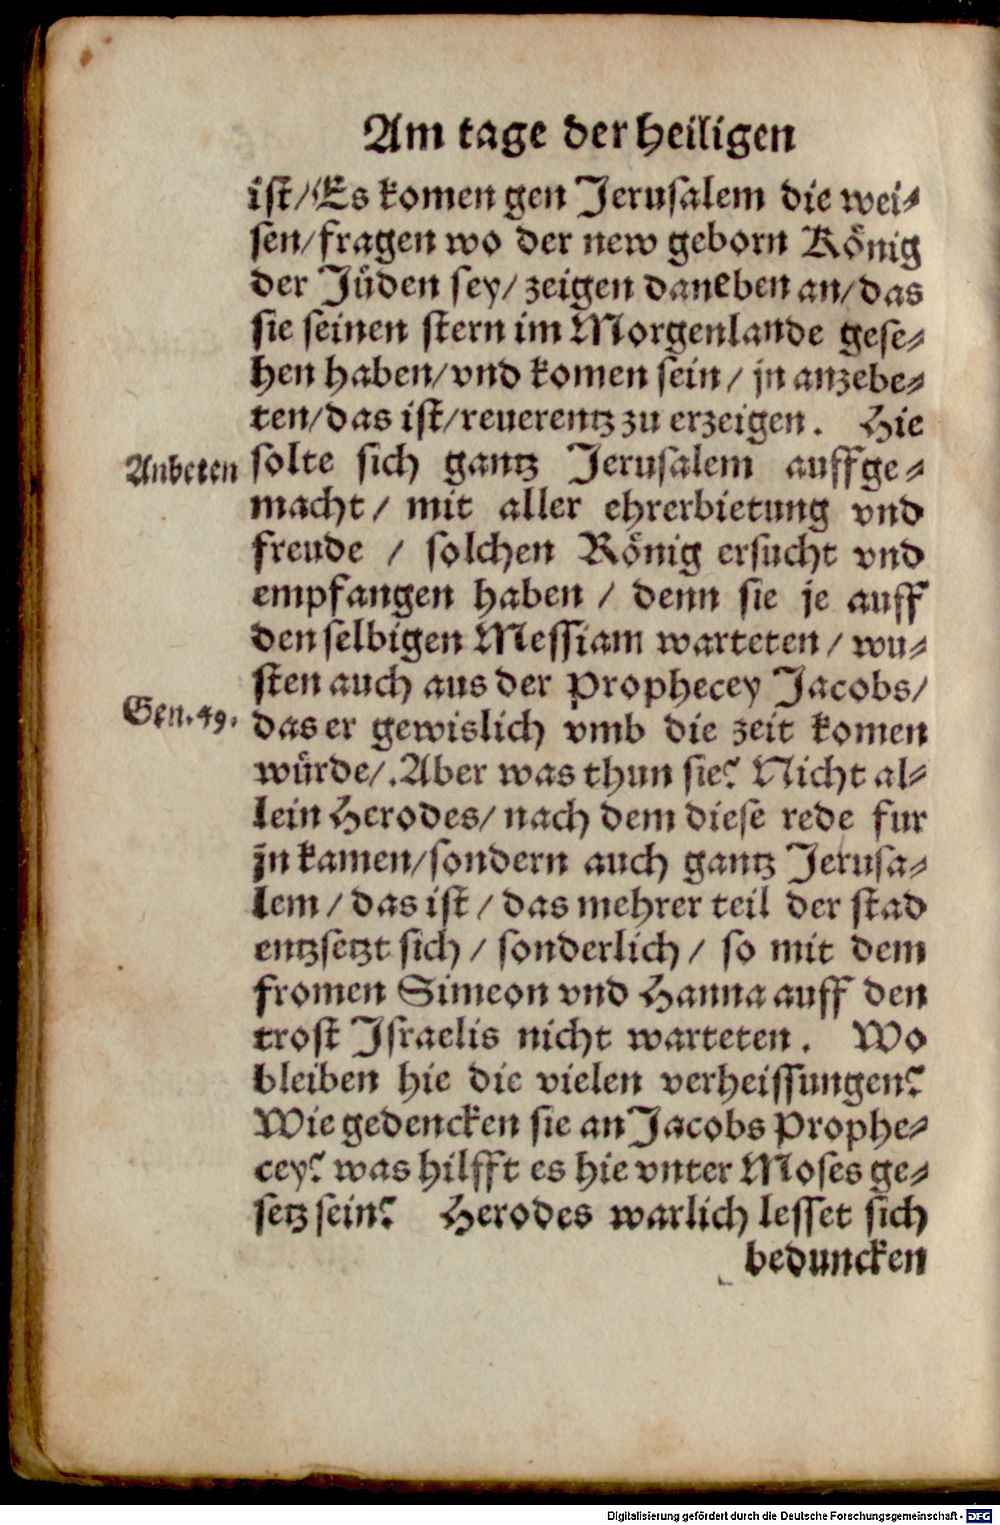 Am tage der heiligen
ist/Es komen gen Jerusalem die wei⸗
sen/fragen wo der new geborn König
der Jüden sey/ zeigen daneben an/das
sie seinen stern im Morgenlande gese⸗
hen haben/vnd komen sein/ jn anzebe⸗
ten/das ist/reuerentz zu erzeigen. Hie
Anbeten
solte sich gantz Jerusalem auffge⸗
macht/ mit aller ehrerbietung vnd
freude / solchen König ersucht vnd
empfangen haben / denn sie je auff
den selbigen Messiam warteten/ wu⸗
sten auch aus der Prophecey Jacobs/
Gen.49.
das er gewislich vmb die zeit komen
würde/.Aber was thun sie? Nicht al⸗
lein Herodes/ nach dem diese rede fur
jn kamen/sondern auch gantz Jerusa⸗
lem/ das ist/ das mehrer teil der stad
entzsetzt sich/ sonderlich/ so mit dem
fromen Simeon vnd Hanna auff den
trost Israelis nicht warteten. Wo
bleiben hie die vielen verheissungen?
Wie gedencken sie an Jacobs Prophe⸗
cey? was hilfft es hie vnter Moses ge⸗
setz sein? Herodes warlich lesset sich
beduncken
Digitalisierung gefördert durch die Deutsche Forschungsgemeinschaft - DFG